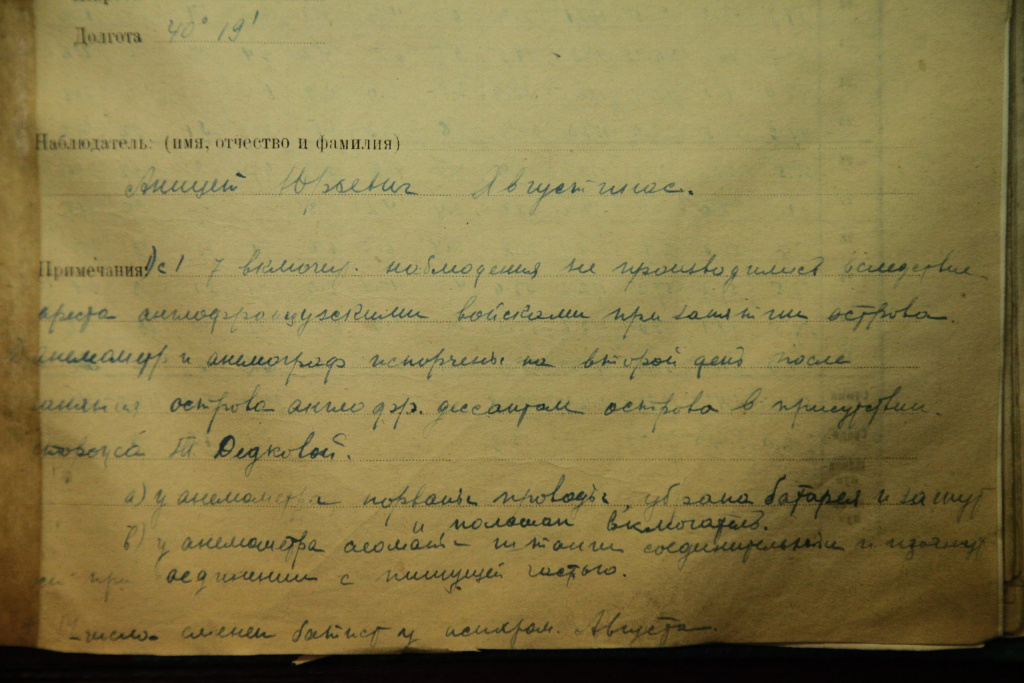 Долгота 40° 19'
Наблюдатель: (имя, отчество и фамилия)
Юрьевич Августинас.
Примечания: 1) с 1 7 включ. наблюдения не производились вследствие
ареста англофранцузскими войсками при занятии острова.
анемометр и анемограф испорчены на второй день после
занятия острова англофр. дессантом острова в присутствии
Т Дедковой.
а) у анемометра порваны провода, убрана батарея и
и поломан включатель.
в) у анемометра сломаны штанги соединительныя и
при соединении с пишущей частью.
число сменен батист у психром. Августа.